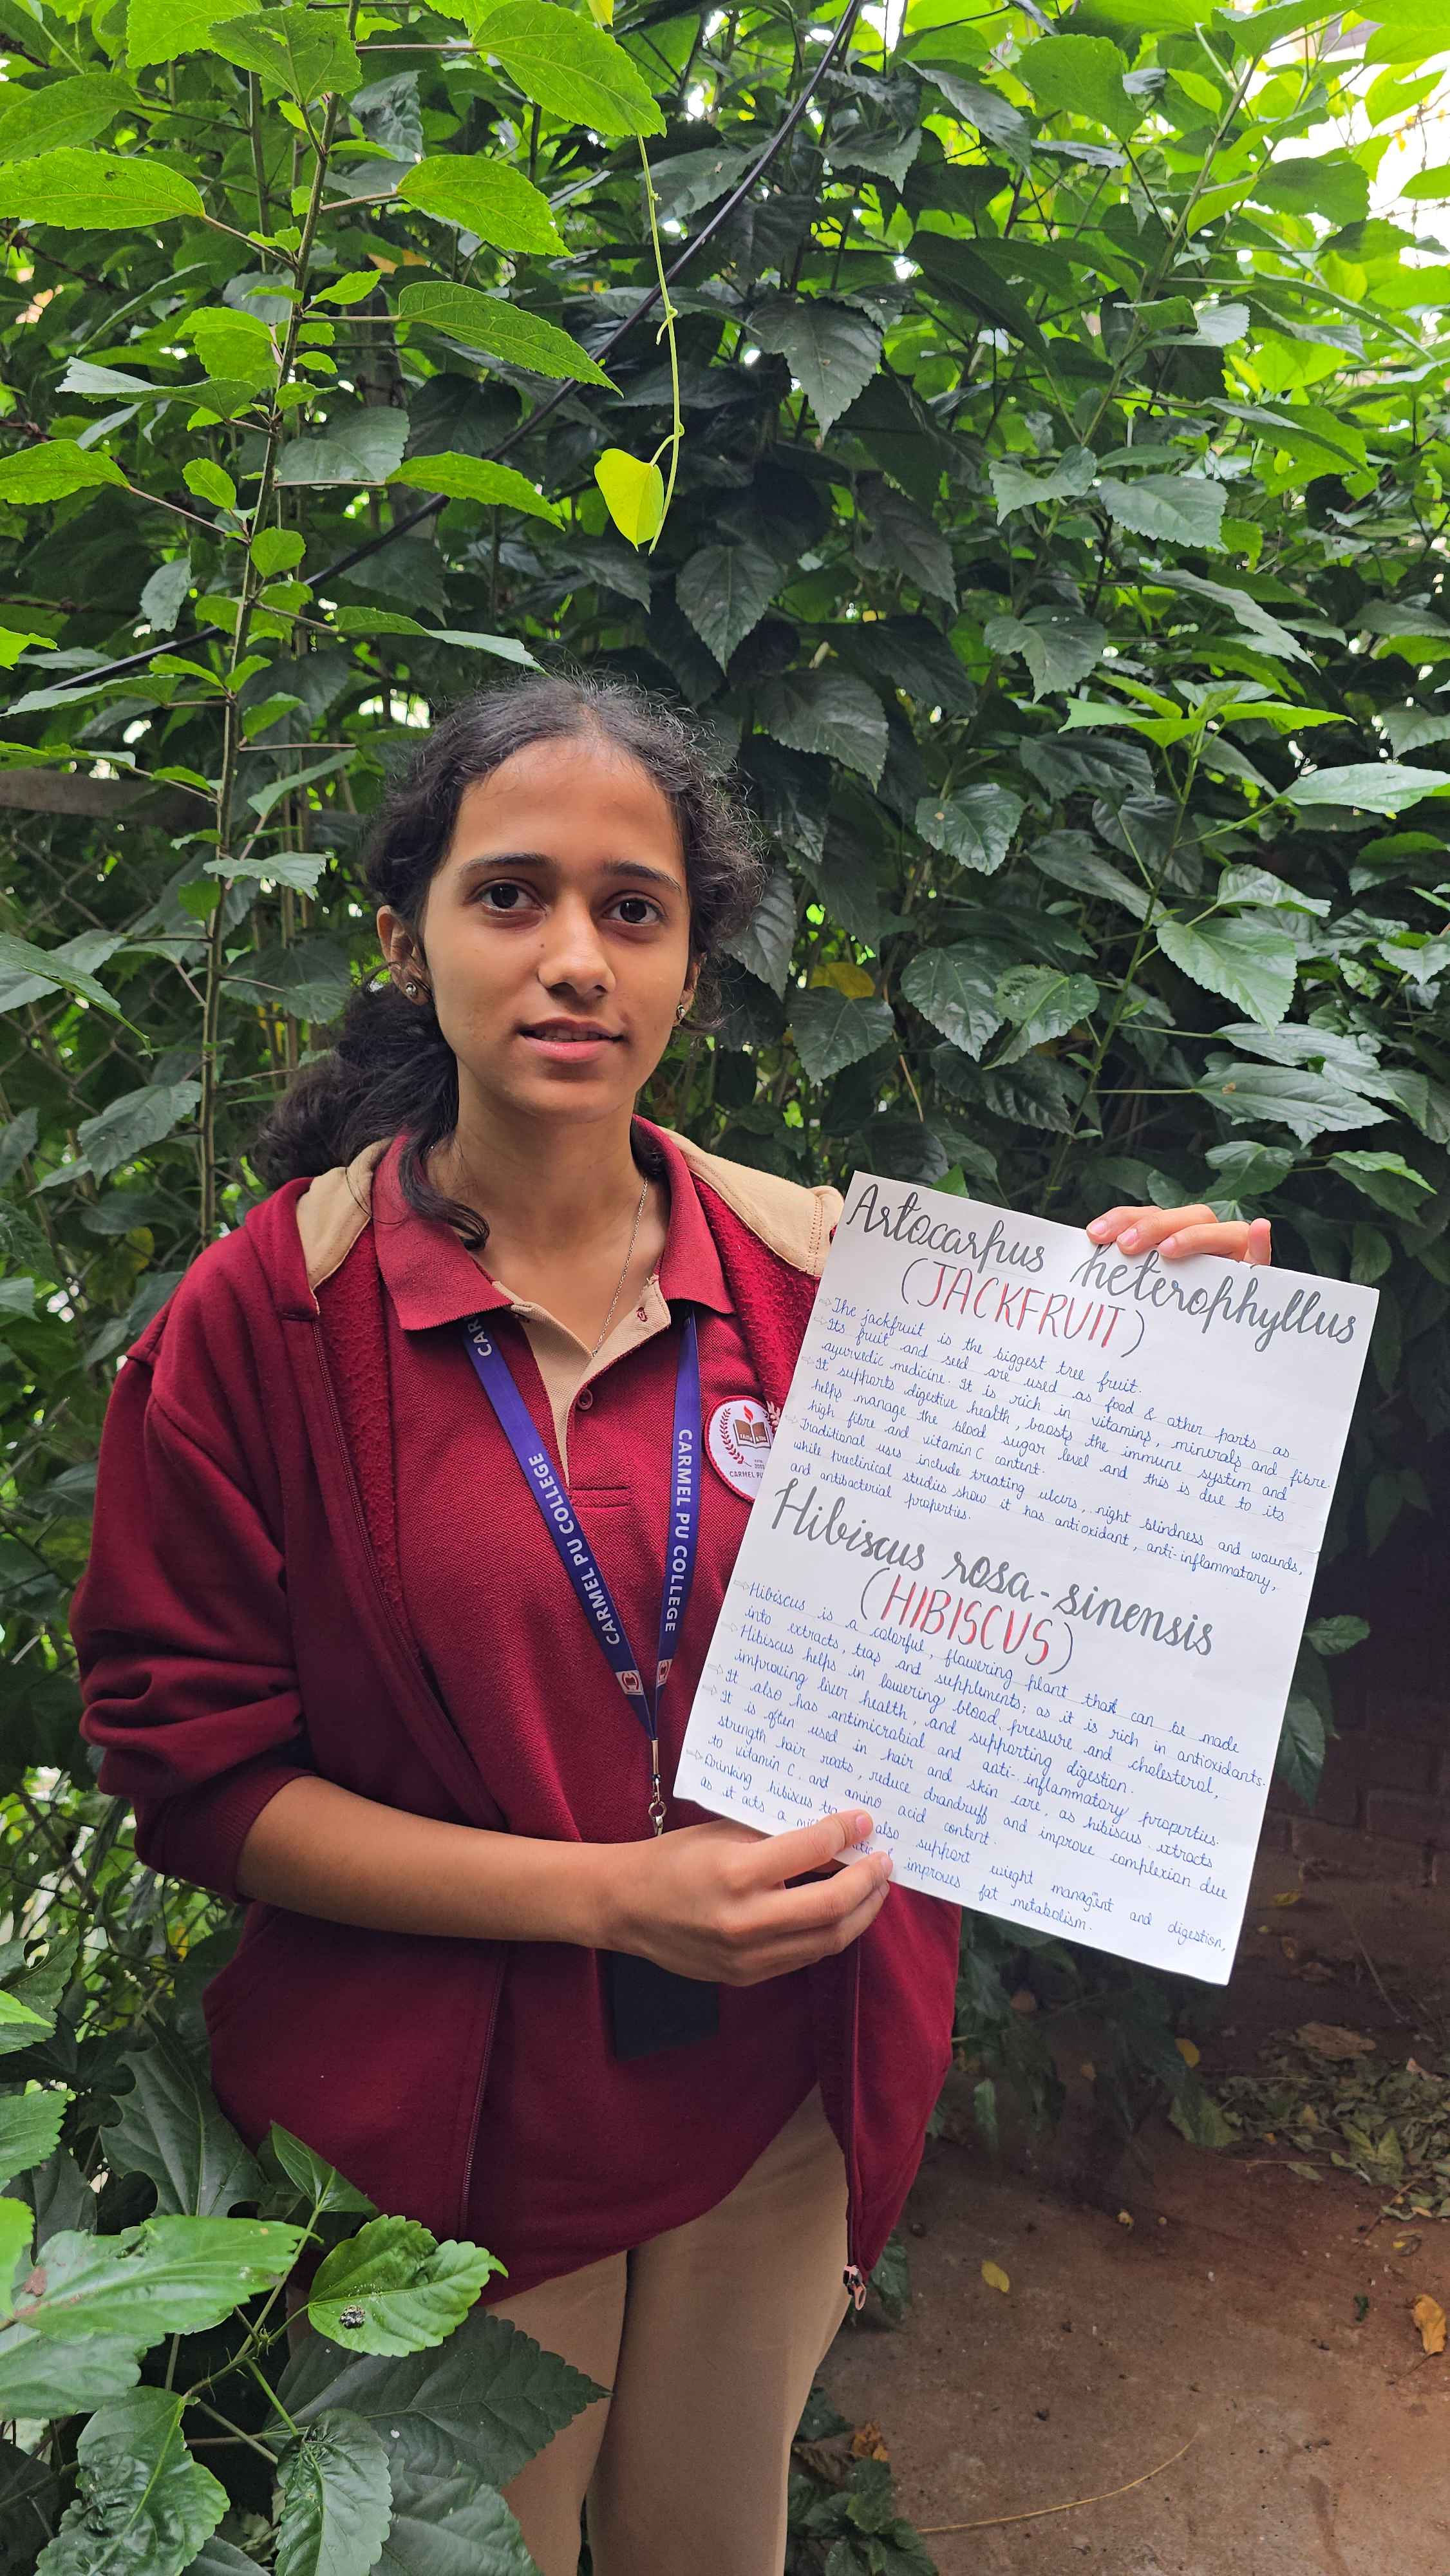 Artocarpus heterophyllus
(JACKFRUIT)
The jackfruit is the biggest tree fruit.
Its fruit and seed are used as food & other parts as
ayurvedic medicine. It is rich in vitamins, minerals and fibre.
It supports digestive health, boosts the immune system and
helps manage the blood sugar level and this is due to its
high fibre and vitamin C content.
Traditional uses include treating ulcers, night blindness and wounds,
while preclinical studies show it has antioxidant, anti-inflammatory,
and antibacterial properties.
Hibiscus rosa-sinensis
(HIBISCUS)
Hibiscus is a colorful, flowering plant that can be made
into extracts, teas and supplements; as it is rich in antioxidants.
Hibiscus helps in lowering blood pressure and cholesterol,
improving liver health, and supporting digestion.
It also has antimicrobial and anti-inflammatory properties.
It is often used in hair and skin care, as hibiscus extracts
strength hair roots, reduce dandruff and improve complexion due
to vitamin C and amino acid content.
Drinking hibiscus tea also support weight managent and digestion,
as it acts a improves fat metabolism.
CAR
CARMEL PU COLLEGE
CARMEL PU COLLEGE
CARMEL PU